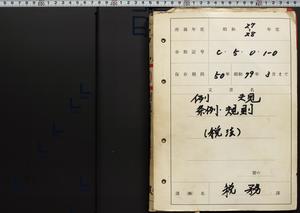 所属年度 昭和 27 28 年度
分類記号 C・5・0・1-0
保存期間 50年 昭和79年3月まで
文書名
例規
条例・規則
(税法)
課(所)名 税務 課